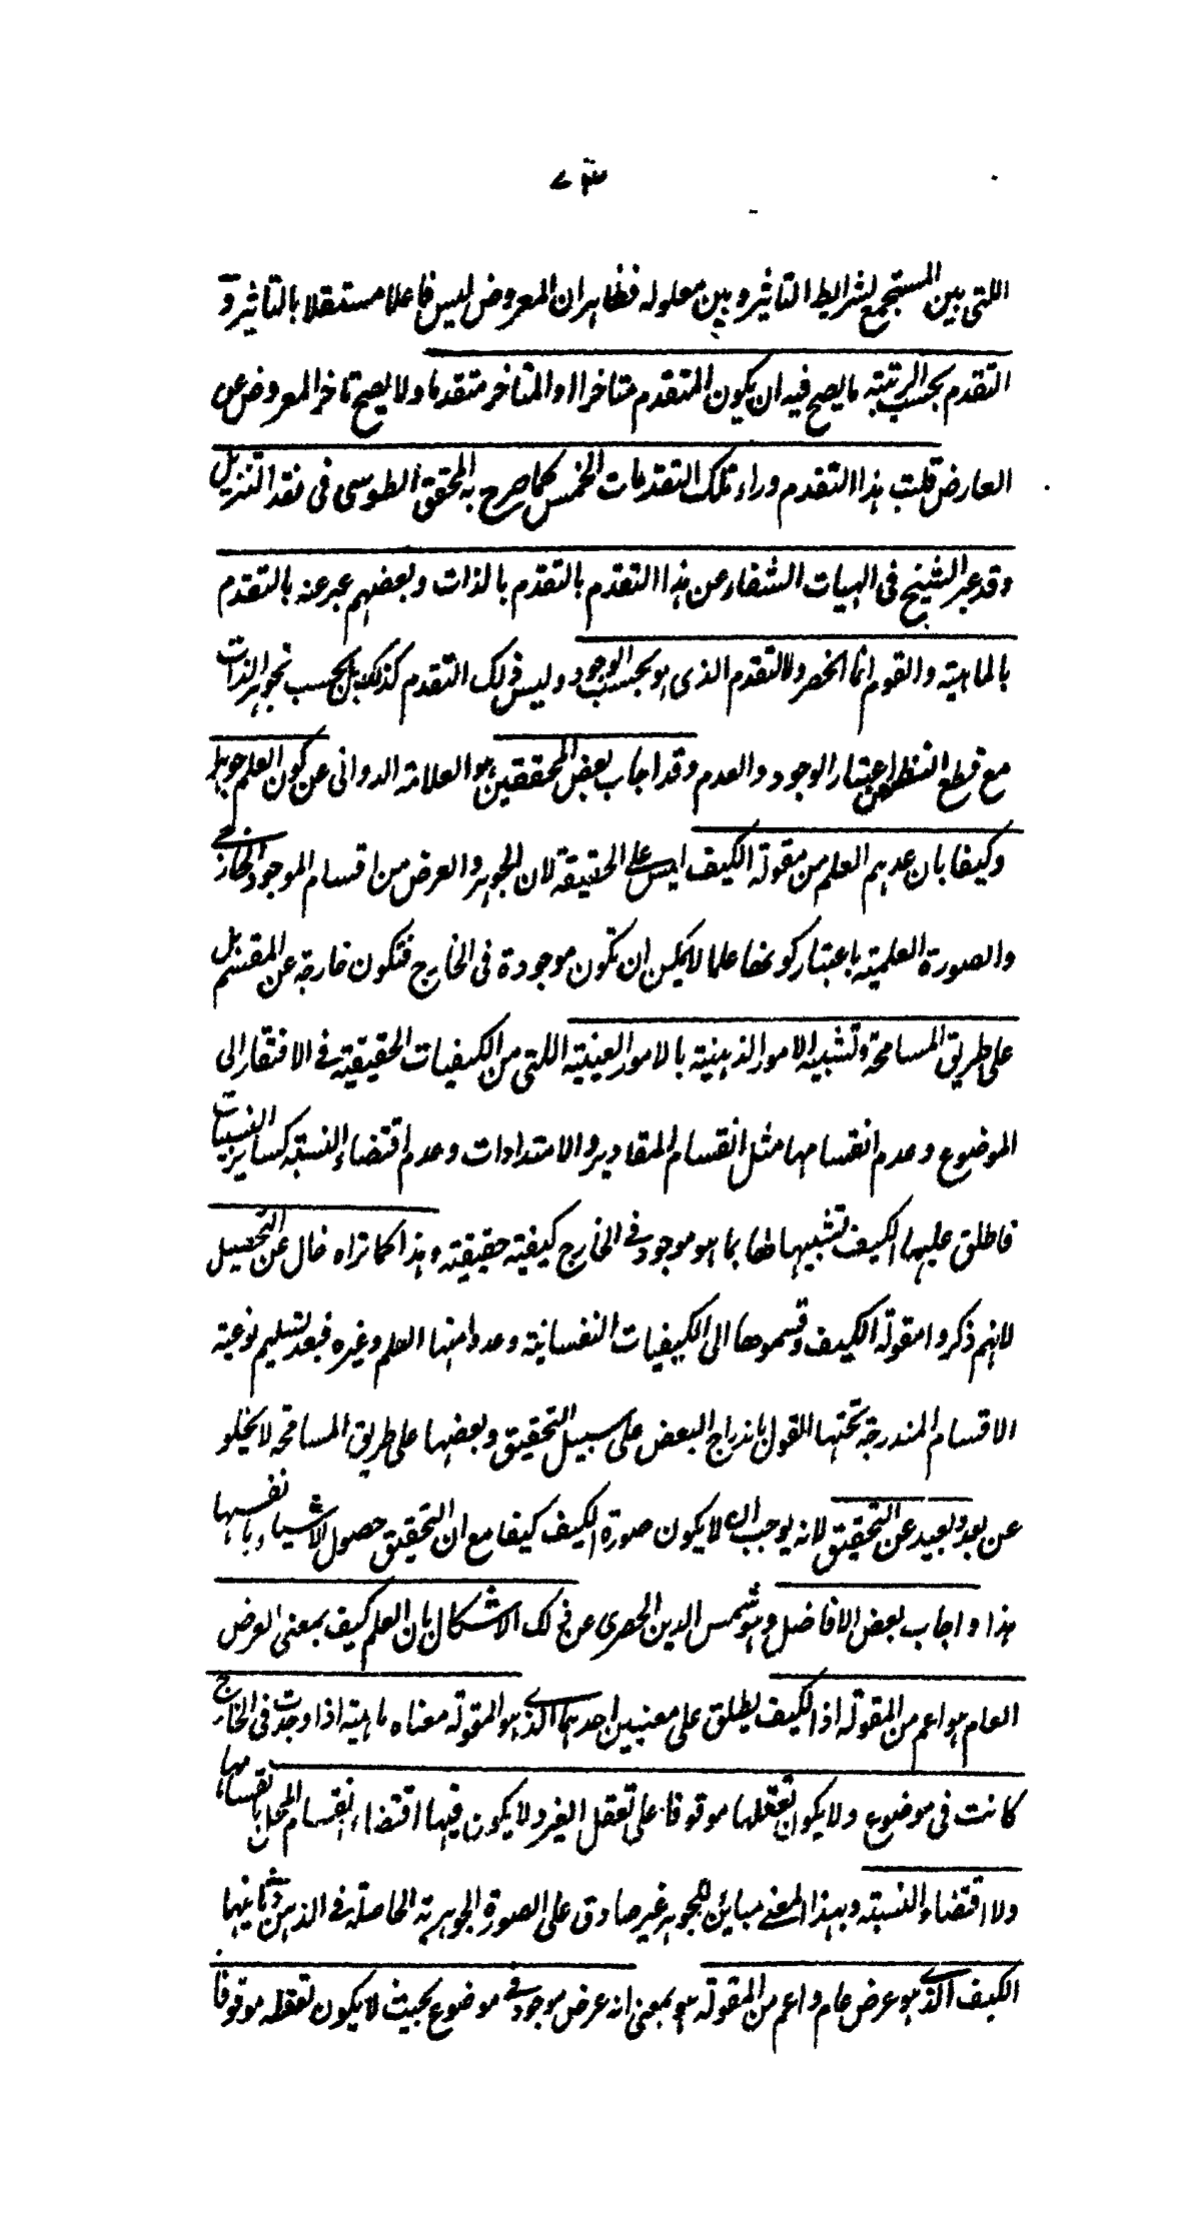 اللتى بين المستجمع لشرايط التاثير وبين معلوله فظاهر ان المعروض ليس فاعلا مستقلا بالتاثير و
التقدم بحسب الرتبته ما يصح فيه ان يكون المتقدم متاخرا والمتاخر متقدما ولا يصح تاخر المعروض عن
العارض قلت هذا التقدم وراء تلك التقدمات الخمس كما صرح به المحقق الطوسى فى نقد التنزيل
وقد عبر الشيخ فى الهيات الشفاء عن هذا التقدم بالتقدم بالذات وبعضهم عبر عنه بالتقدم
بالماهية والقوم انما حصروا التقدم الذى هو بحسب الوجود وليس ذلك التقدم كذلك بل بحسب تجوهر الذات
مع قطع النظر عن اعتبار الوجود والعدم وقد اجاب بعض المحققين هو العلامة الدوانى عن كون العلم جوهرا
وكيفا بان عدهم العلم من مقولة الكيف ليس على الحقيقة لان الجوهر والعرض من اقسام الموجود الخارجى
والصورة العلمية باعتبار كونها علما لا يمكن ان تكون موجودة فى الخارج فتكون خارجة عن المقسم بل
على طريق المسامحة وتشبيه الامور الذهنية بالامور العينية اللتى من الكيفيات الحقيقية فى الافتقار الى
الموضوع وعدم انقسامها مثل انقسام المقادير والامتدادات وعدم اقتضاء النسبة كساير النسبيات
فاطلق عليها الكيف تشبيها لها بما هو موجود فى الخارج كيفية حقيقية وهذا كما تراه خال عن التحصيل
لانهم ذكروا مقولة الكيف وقسموها الى الكيفيات النفسانية وعدوا منها العلم وغيره فبعد تسليم نوعية
الاقسام المندرجة تحتها القول باندراج البعض على سبيل التحقيق وبعضها على طريق المسامحة لا يخلو
عن بعد وبعيد عن التحقيق لانه يوجب ان لا يكون صورة الكيف كيفا مع ان التحقيق حصول الاشياء بانفسها
هذا واجاب بعض الافاضل وهو شمس الدين الخضرى عن ذلك الاشكال بان العلم كيف بمعنى العرض
العام هو اعم من المقولة اذ الكيف يطلق على معنيين احدهما الذى هو المقولة معناه ماهية اذا وجدت فى الخارج
كانت فى موضوع ولا يكون تعقلها موقوفا على تعقل الغير ولا يكون فيها اقتضاء انقسام المحل بانقسامها
ولا اقتضاء النسبة وبهذا المعنى مباين للجوهر غير صادق على الصورة الجوهرية الحاصلة فى الذهن وثانيها
الكيف الذى هو عرض عام واعم من المقولة هو بمعنى انه عرض موجود فى موضوع بحيث لا يكون تعقله موقوفا